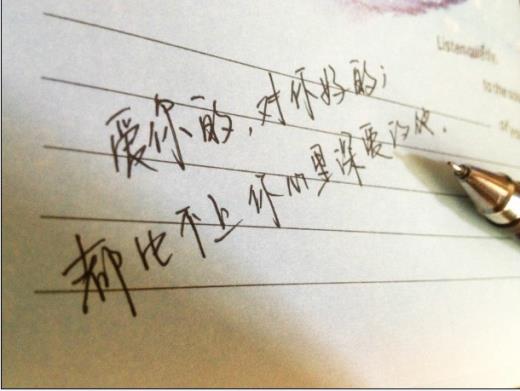 Listen quietly,
to the sou
of
爱你的,对你好的;
都比不上你心里深爱的他.